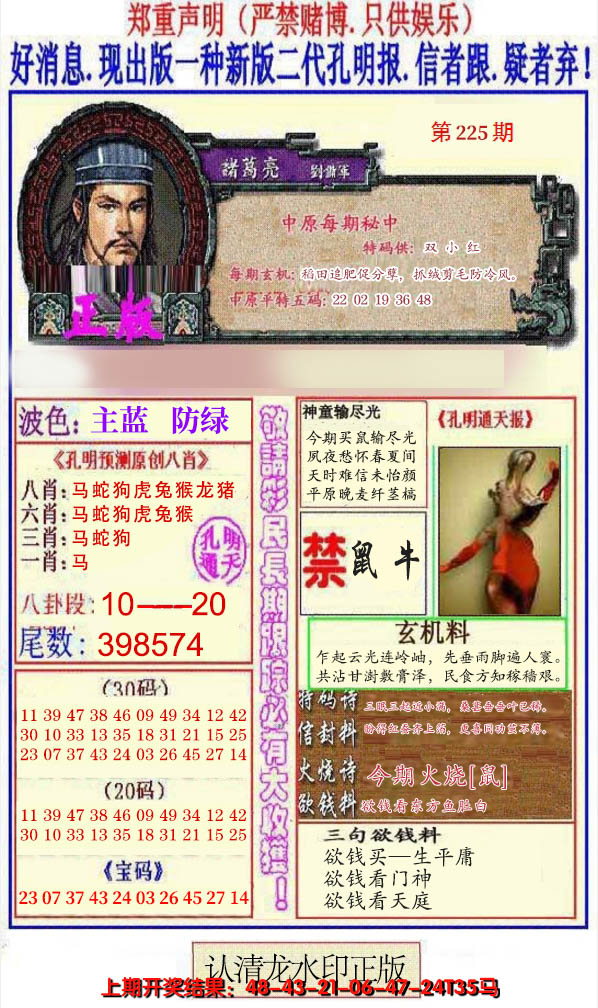 郑重声明（严禁赌博.只供娱乐）
好消息.现出版一种新版二代孔明报.信者跟.疑者弃！
第225期
諸葛亮
中原每期秘中
特码供：双小红
每期玄机：稻田追肥促分孽，抓绒剪毛防冷风。
中原平特五码：22 02 19 36 48
正版
波色：主蓝 防绿
《孔明预测原创八肖》
八肖：马蛇狗虎兔猴龙猪
六肖：马蛇狗虎兔猴
三肖：马蛇狗
一肖：马
孔明通天
八卦段：10----20
尾数：398574
（30码）
11 39 47 38 46 09 49 34 12 42
30 10 33 13 35 18 31 21 15 25
23 07 37 43 24 03 26 45 27 14
（20码）
11 39 47 38 46 09 49 34 12 42
30 10 33 13 35 18 31 21 15 25
《宝码》
23 07 37 43 24 03 26 45 27 14
敬請彩民長期跟踪必有大收獲！
神童输尽光
今期买鼠输尽光
夙夜愁怀春夏间
天时难信未怡颜
平原晚麦纤茎槁
《孔明通天报》
禁鼠牛
玄机料
乍起云光连岭岫，先垂雨脚遍人寰。
共沾甘澍敷膏泽，民食方知稼穑艰。
特码诗
三眠三起近小满，桑葚垂垂叶已稀。
信封料
盼得红蚕齐上箔，更喜同功茧不薄。
火烧诗
今期火烧[鼠]
欲钱料
欲钱看东方鱼肚白
三句欲钱料
欲钱买一生平庸
欲钱看门神
欲钱看天庭
认清龙水印正版
上期开奖结果：48-43-21-06-47-24T35马